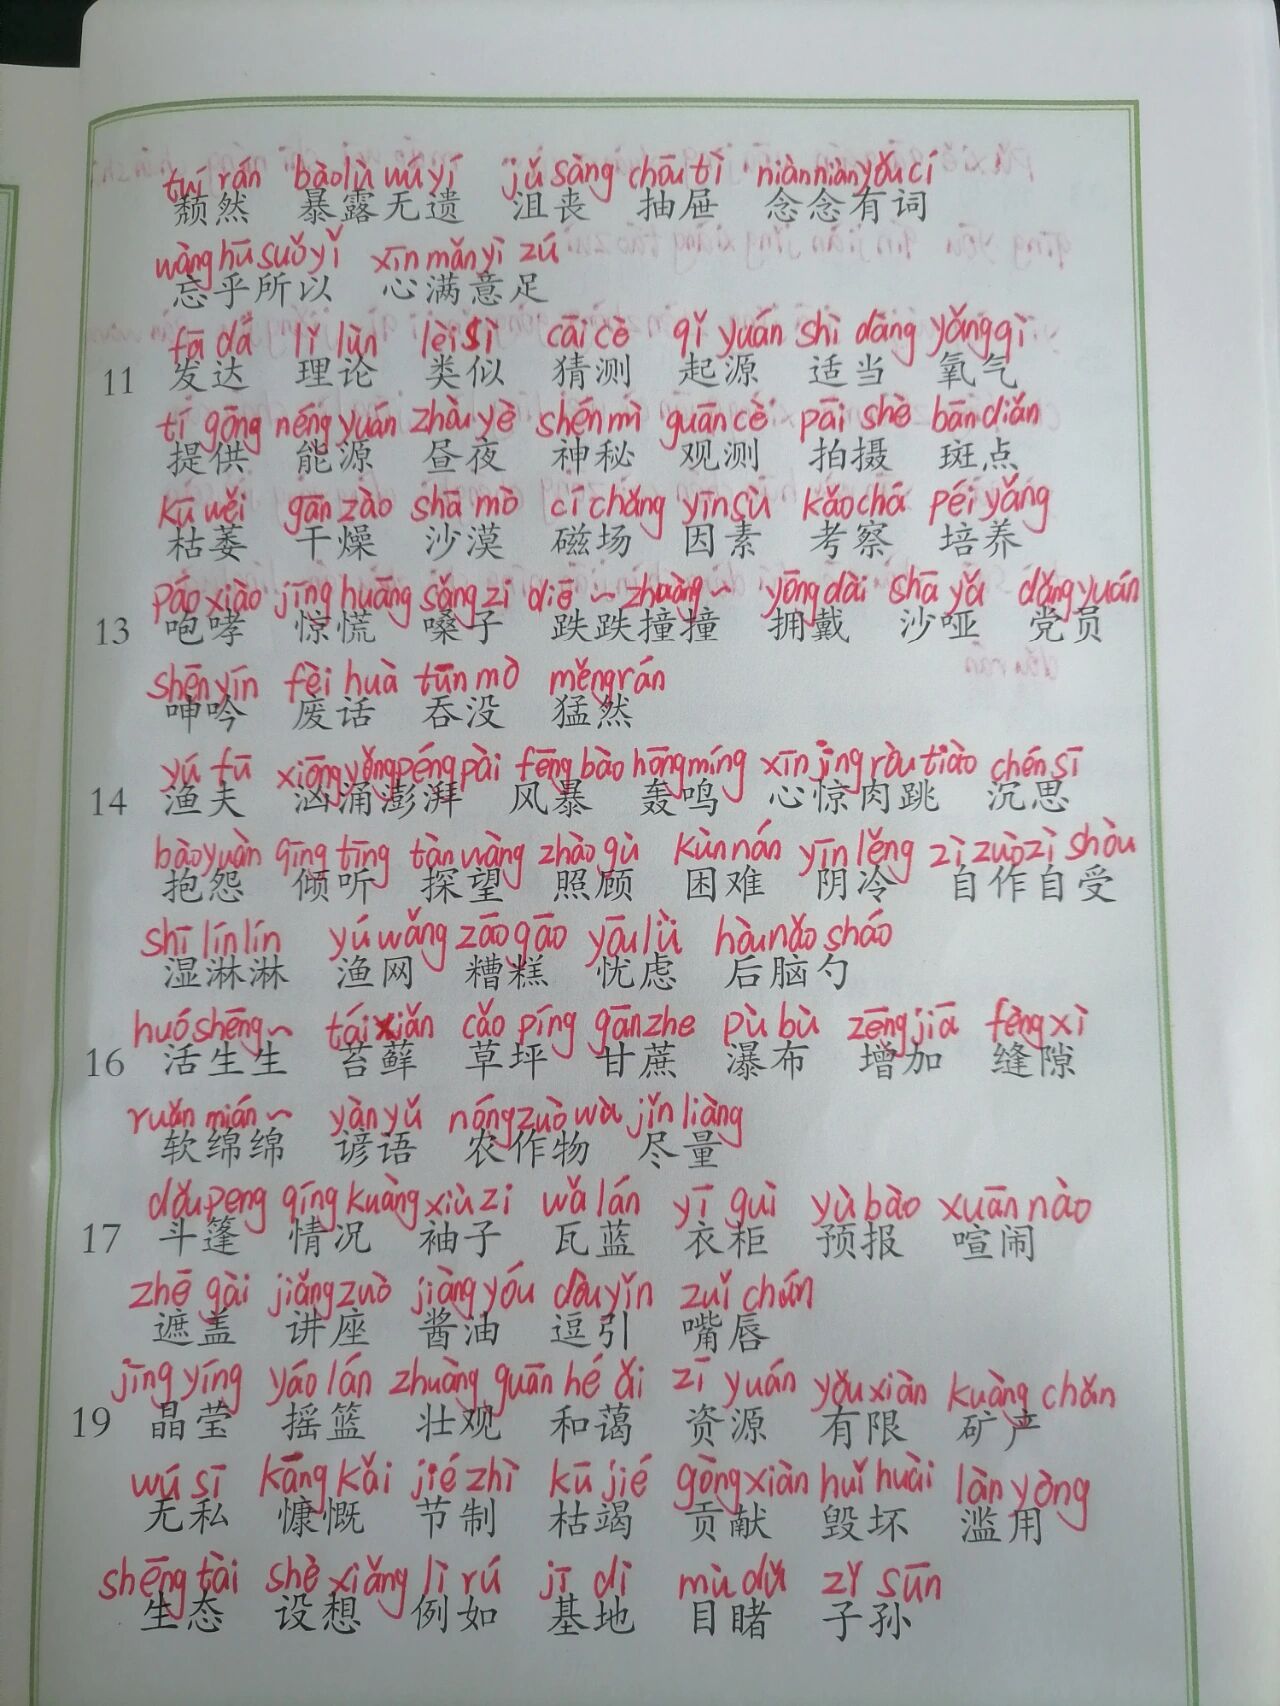 tuí rán bào lù wú yí jǔ sàng chōu tì niàn niàn yǒu cí
颓然 暴露无遗 沮丧 抽屉 念念有词
wàng hū suǒ yǐ xīn mǎn yì zú
忘乎所以 心满意足
fā dá lǐ lùn lèi sì cāi cè qǐ yuán shì dāng yǎng qì
11 发达 理论 类似 猜测 起源 适当 氧气
tí gōng néng yuán zhòu yè shén mì guān cè pāi shè bān diǎn
提供 能源 昼夜 神秘 观测 拍摄 斑点
kū wěi gān zào shā mò cí chǎng yīn sù kǎo chá péi yǎng
枯萎 干燥 沙漠 磁场 因素 考察 培养
páo xiào jīng huāng sǎng zi diē ~ zhuàng ~ yōng dài shā yǎ dǎng yuán
13 咆哮 惊慌 嗓子 跌跌撞撞 拥戴 沙哑 党员
shēn yín fèi huà tūn mò měng rán
呻吟 废话 吞没 猛然
yú fū xiōng yǒng péng pài fēng bào hōng míng xīn jīng ròu tiào chén sī
14 渔夫 汹涌澎湃 风暴 轰鸣 心惊肉跳 沉思
bào yuàn qīng tīng tàn wàng zhào gù kùn nán yīn lěng zì zuò zì shòu
抱怨 倾听 探望 照顾 困难 阴冷 自作自受
shī lín lín yú wǎng zāo gāo yōu lǜ hòu nǎo sháo
湿淋淋 渔网 糟糕 忧虑 后脑勺
huó shēng ~ tái xiǎn cǎo píng gān zhe pù bù zēng jiā fèng xì
16 活生生 苔藓 草坪 甘蔗 瀑布 增加 缝隙
ruǎn mián ~ yàn yǔ nóng zuò wù jǐn liàng
软绵绵 谚语 农作物 尽量
dǒu peng qíng kuàng xiù zi wǎ lán yī guì yù bào xuān nào
17 斗篷 情况 袖子 瓦蓝 衣柜 预报 喧闹
zhē gài jiǎng zuò jiàng yóu dòu yǐn zuǐ chún
遮盖 讲座 酱油 逗引 嘴唇
jīng yíng yáo lán zhuàng guān hé ǎi zī yuán yǒu xiàn kuàng chǎn
19 晶莹 摇篮 壮观 和蔼 资源 有限 矿产
wú sī kāng kǎi jié zhì kū jié gòng xiàn huǐ huài làn yòng
无私 慷慨 节制 枯竭 贡献 毁坏 滥用
shēng tài shè xiǎng lì rú jī dì mù dǔ zǐ sūn
生态 设想 例如 基地 目睹 子孙